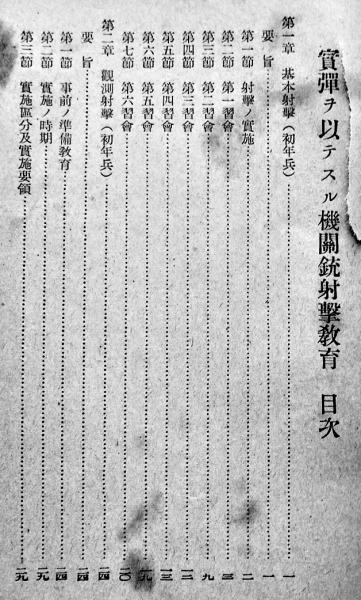 實彈ヲ以テスル機關銃射擊教育　目次
第一章　基本射擊（初年兵）…………一
要　旨…………一
第一節　射擊ノ實施…………二
第二節　第一習會…………三
第三節　第二習會…………九
第四節　第三習會…………一一
第五節　第四習會…………一三
第六節　第五習會…………一九
第七節　第六習會…………二〇
第二章　觀測射擊（初年兵）…………二四
要　旨…………二四
第一節　事前ノ準備教育…………二四
第二節　實施ノ時期…………二九
第三節　實施區分及實施要領…………二九